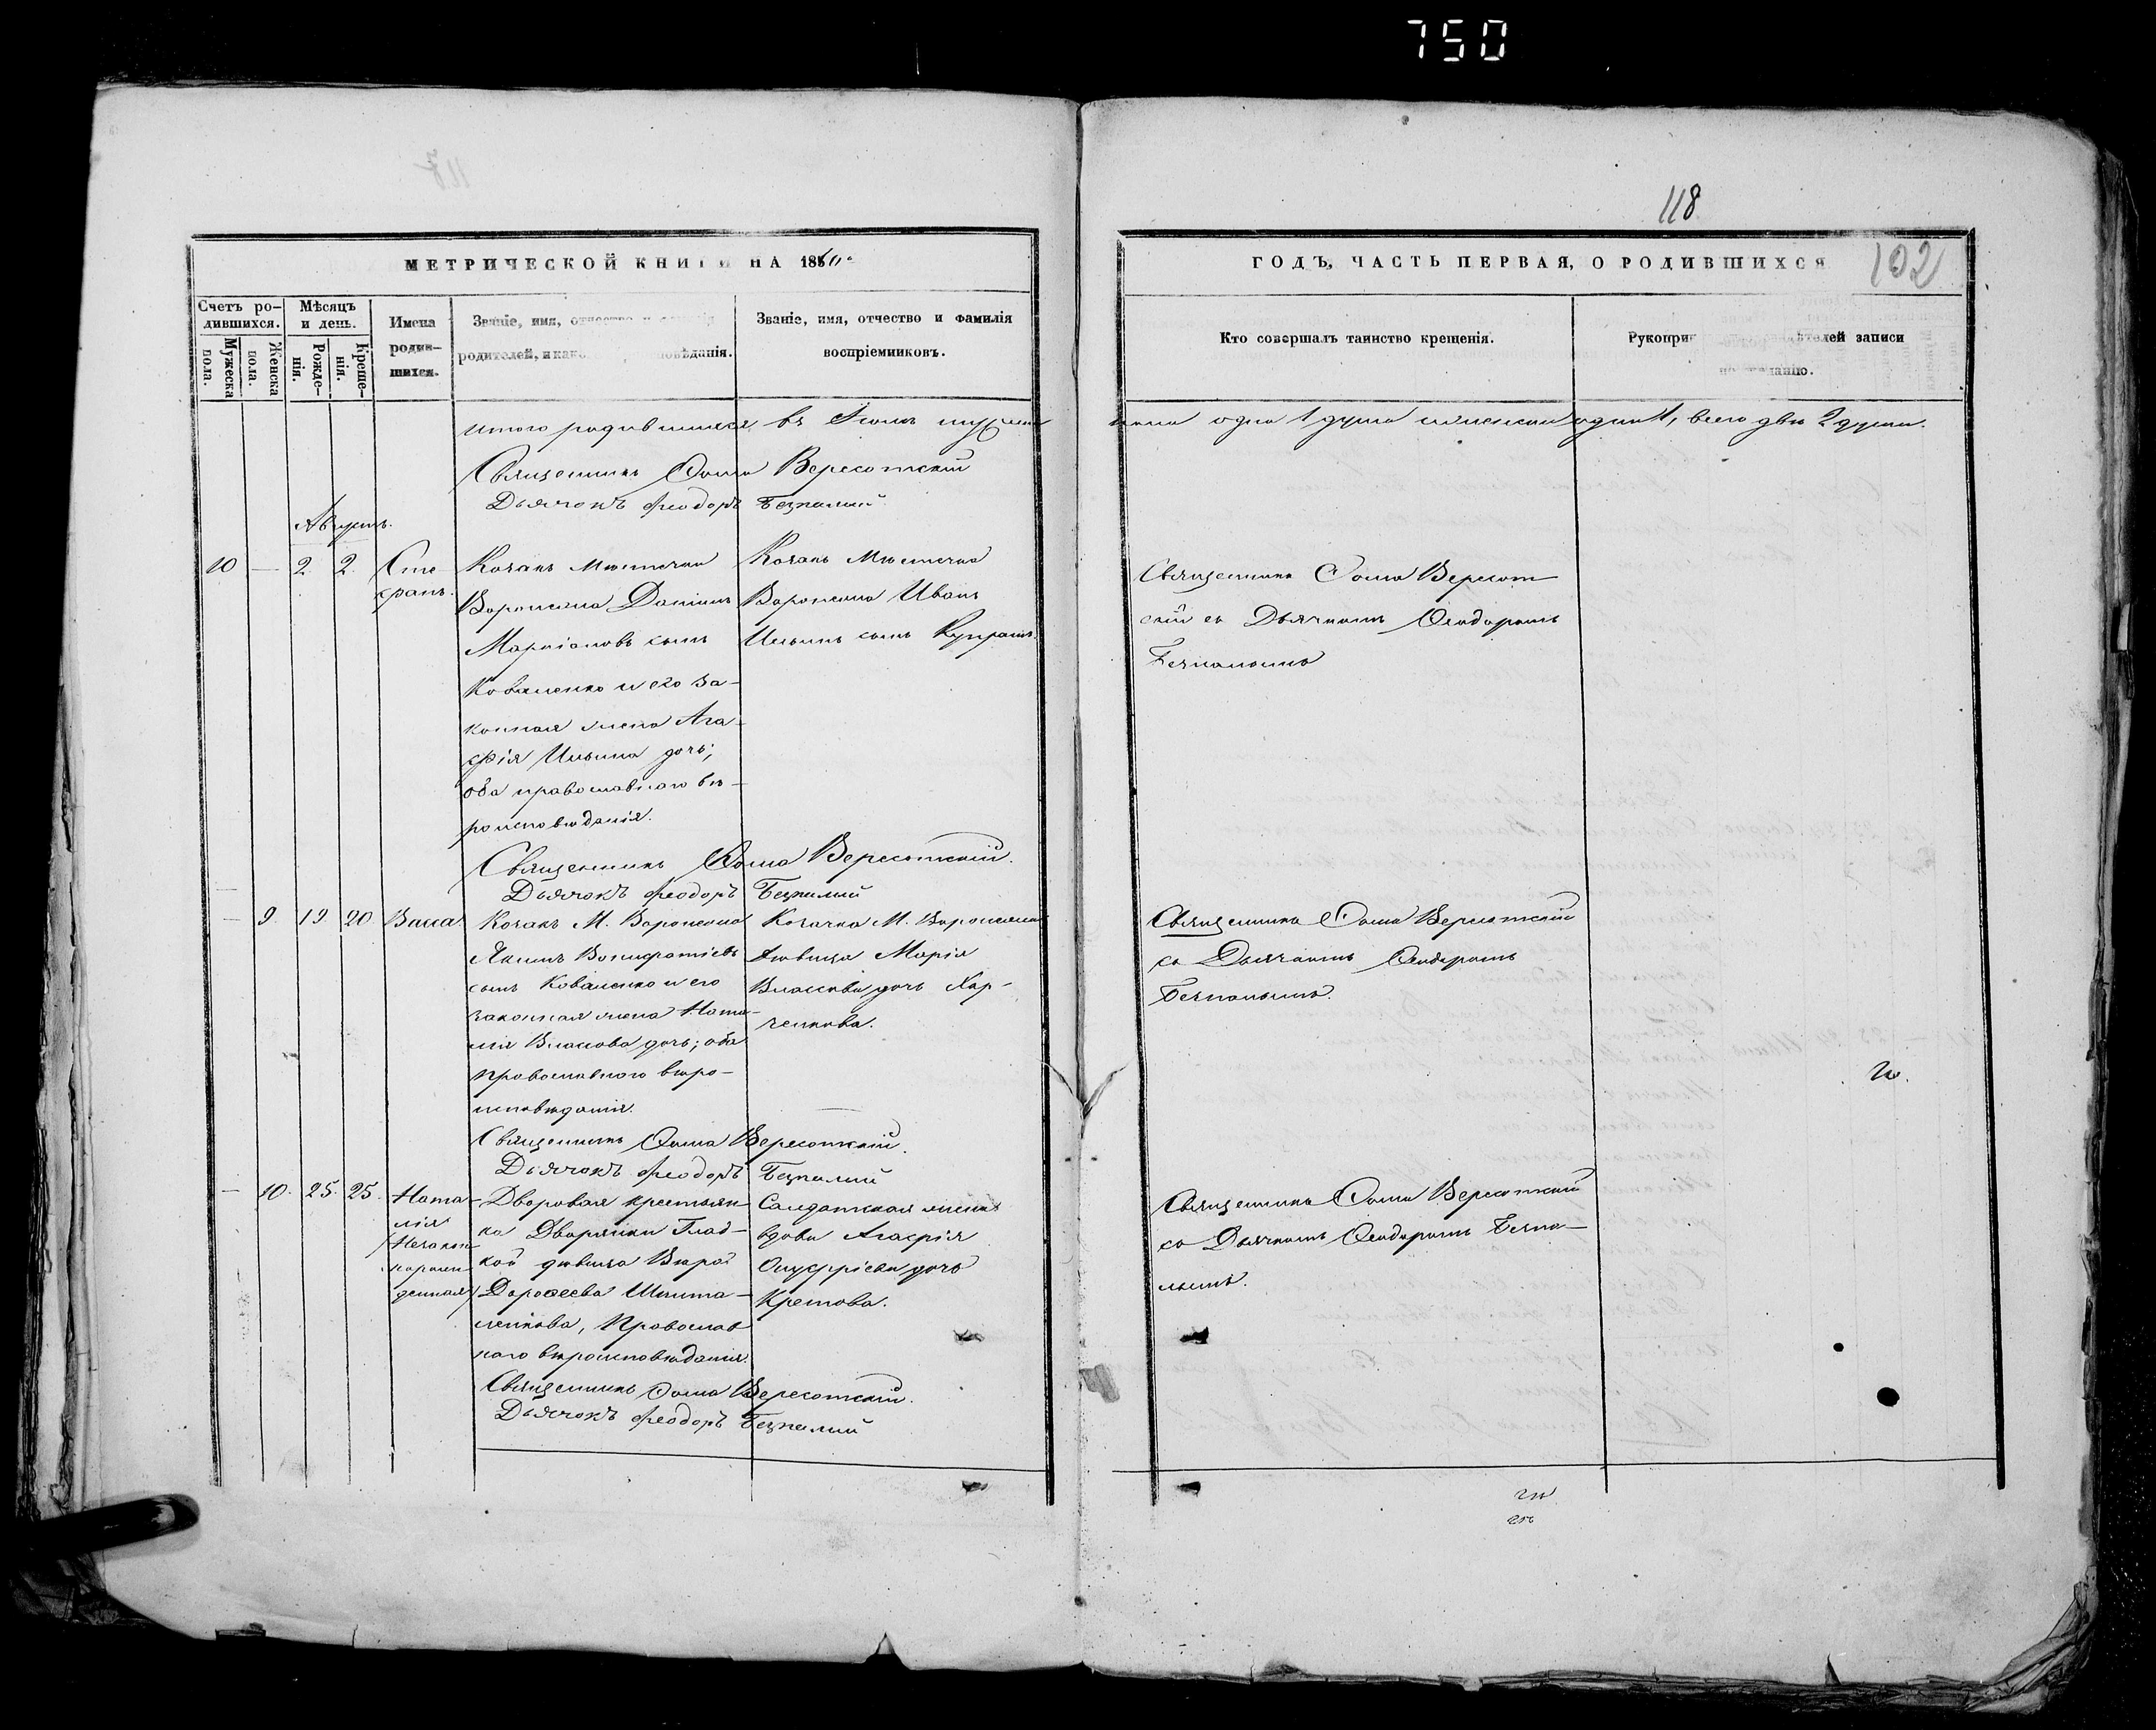 750
118
МЕТРИЧЕСКОЙ КНИГИ НА 1860.
ГОДЪ, ЧАСТЬ ПЕРВАЯ, О РОДИВШИХСЯ
102
Счетъ ро-
дившихся.
Мужеска пола.
Женска пола.
Мѣсяцъ
и день.
Рожде-
нія.
Креще-
нія.
Имена
родив-
шихся.
Званіе, имя, отчество и
родителей, и како вѣданія.
Званіе, имя, отчество и фамилія
воспріемниковъ.
Кто совершалъ таинство крещенія.
Рукопри телей записи
по желанію.
итого родившихся въ Іюлѣ мужеска
пола одна 1 душа женска одна 1, всего двѣ 2 души.
Священникъ Ѳома Вересотскій
Дьячокъ Феодоръ Безпалый
Августъ.
10 — 2. 2. Сте
фанъ.
Козакъ Мѣстечка
Воронежа Даніилъ
Маркіановъ сынъ
Коваленко и его за-
конная жена Ага-
фія Ильина дочь;
оба православнаго вѣ-
роисповѣданія.
Козакъ Мѣстечка
Воронежа Иванъ
Ильинъ сынъ
Священникъ Ѳома Вересот
скій съ Дьячкомъ Ѳеодоромъ
Безпалымъ
Священникъ Ѳома Вересотскій.
Дьячокъ Феодоръ Безпалый
— 9. 19. 20. Васса.
Козакъ М. Воронежа
Якимъ Вонифатіевъ
сынъ Коваленко и его
законная жена Ната-
лія Власова дочь; оба
православнаго вѣро-
исповѣданія.
Козачка М. Воронежа
дѣвица Марія
Власова дочь Хар-
ченкова.
Священникъ Ѳома Вересотскій
съ Дьячкомъ Ѳеодоромъ
Безпалымъ.
Священникъ Ѳома Вересотскій.
Дьячокъ Феодоръ Безпалый
— 10. 25. 25. Ната-
лія
/Незакон
норож
денная/
Дворовая крестьян
ка Дворянки Глад-
кой дѣвица Вѣра
Дороѳеева Шпита-
ленкова, Православ
наго вѣроисповѣданія.
Солдатская жена
вдова Агафія
Онуфріева дочь
Кретова.
Священникъ Ѳома Вересотскій
съ Дьячкомъ Ѳеодоромъ Безпа-
лымъ.
Священникъ Ѳома Вересотскій.
Дьячокъ Феодоръ Безпалый